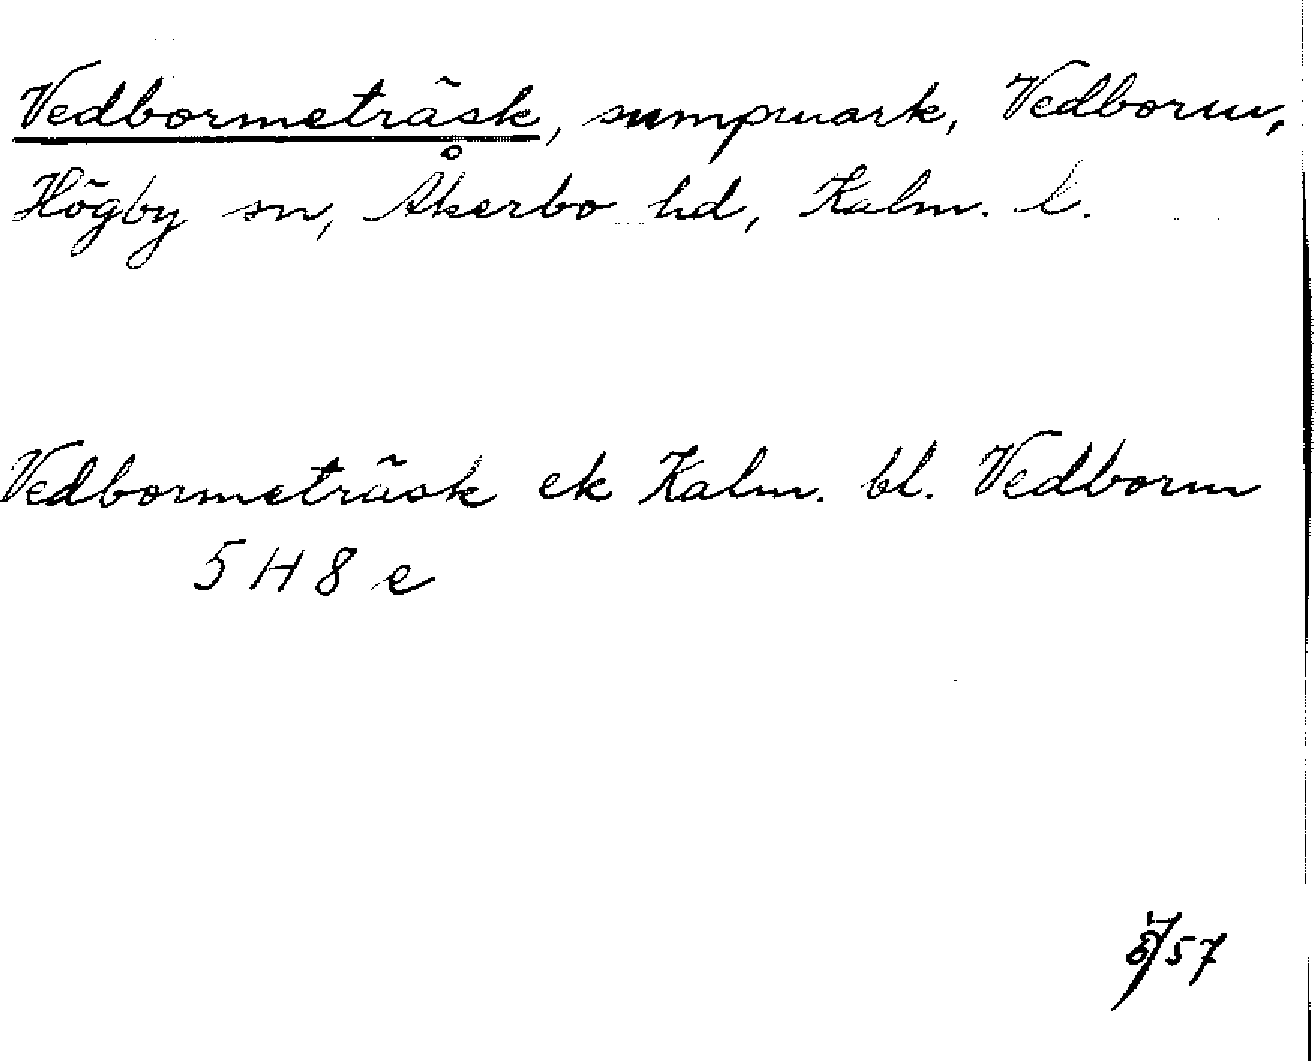 Vedbormeträsk, sumpmark, Vedborm,
Högby sn, Åkerbo hd, Kalm. l.
Vedbormeträsk ek Kalm. bl. Vedborm
5 H 8 e
57